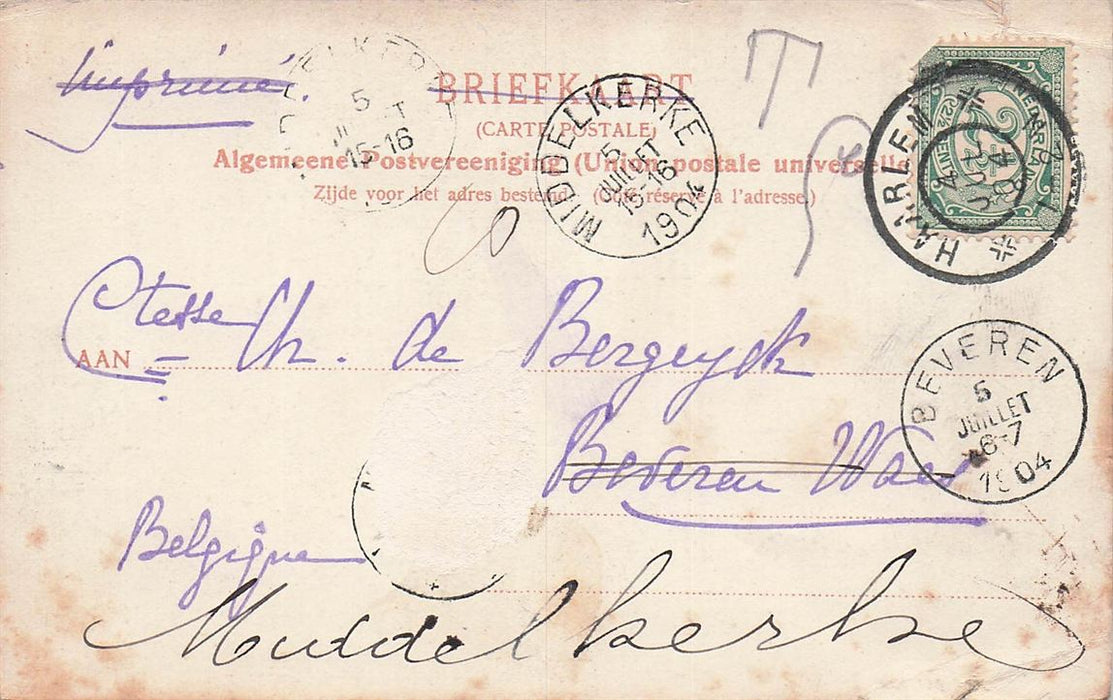 Imprimé.
BRIEFKAART
(CARTE POSTALE)
Algemeene Postvereeniging (Union postale universelle
Zijde voor het adres bestemd. (Côté réservé à l'adresse.)
T
ELKER
5
15-16
MIDDELKERKE
5
JUILLET
15-16
1904
HAARLEM
4 JUL 04
Ctesse Ch. de Bergeyck
AAN
Beveren Waes
BEVEREN
5
JUILLET
6-7
1904
Belgique
Middelkerke